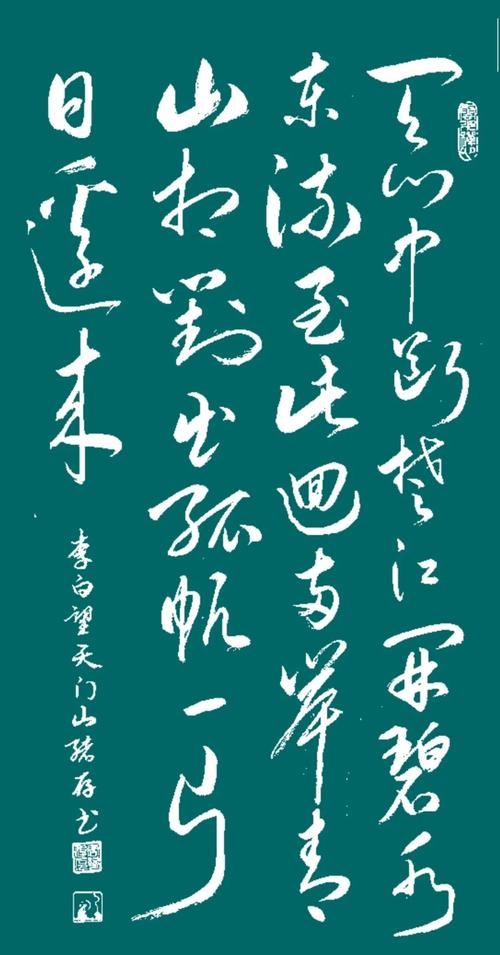 天门中断楚江開碧水
东流至此迴两岸青
山相對出孤帆一片
日邊来
李白望天门山 存书